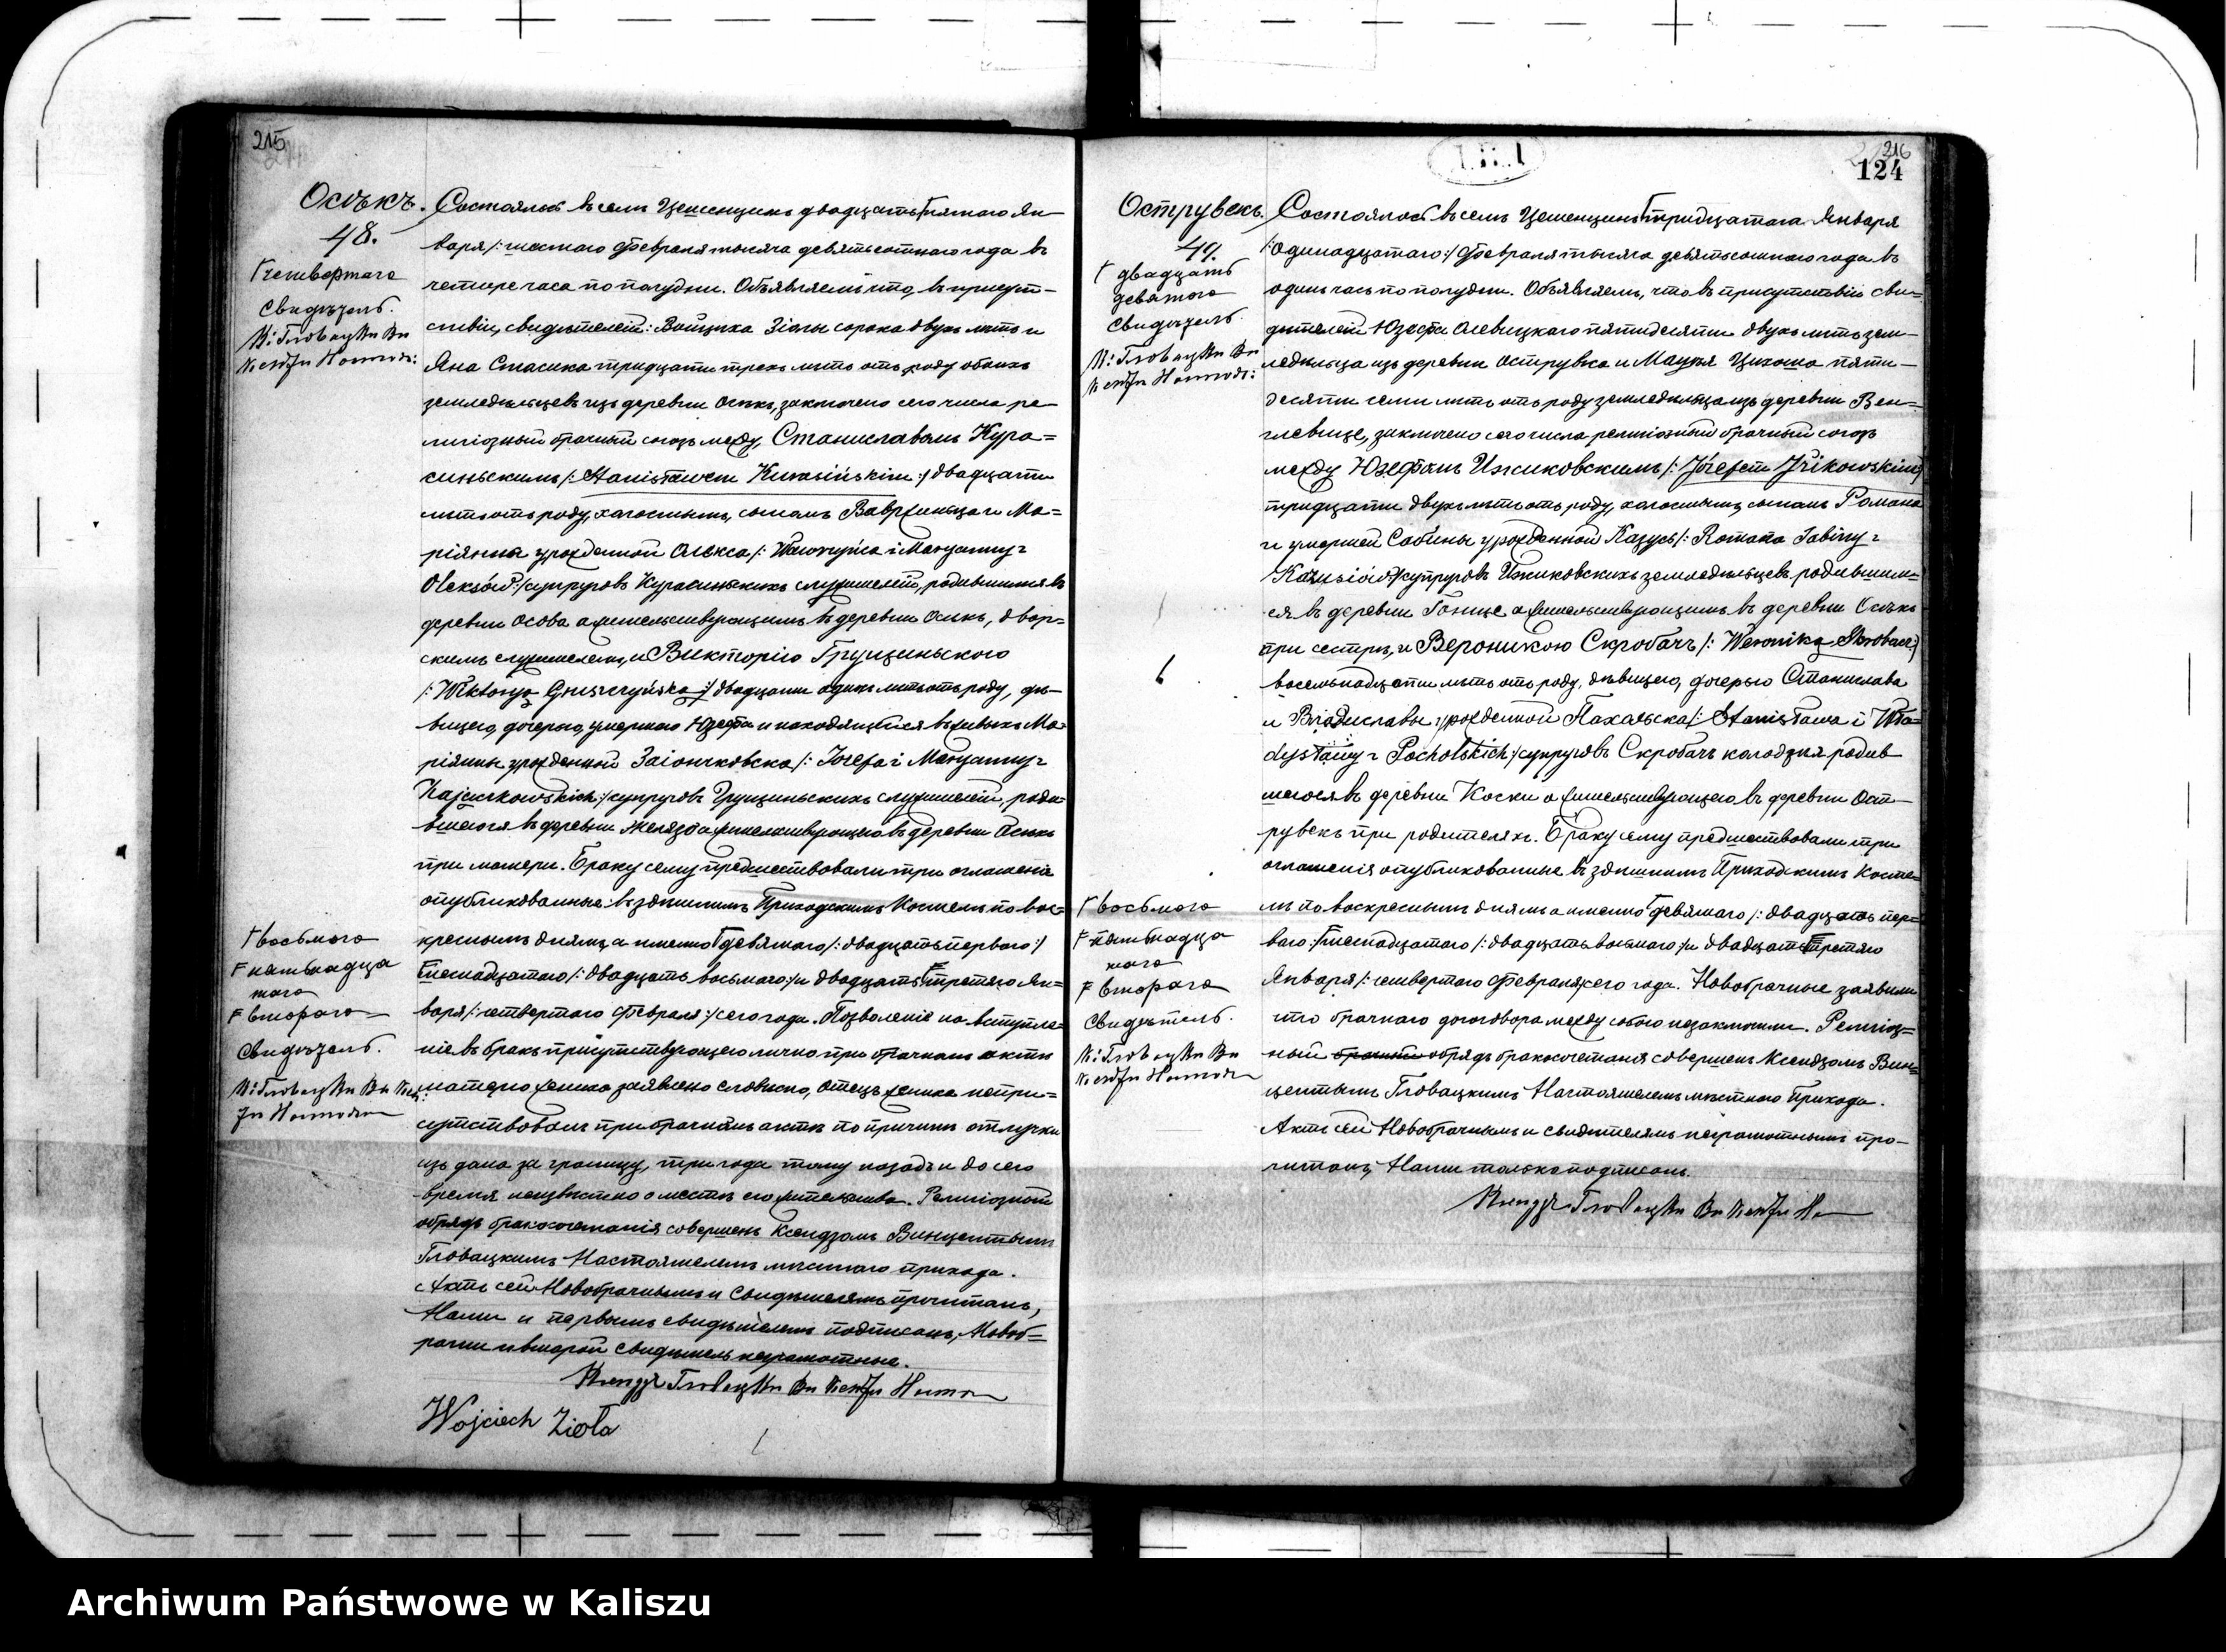 215
Осѣкъ.
48.
Г четвертаго
Свидѣтель.
Состоялось въ селѣ Цешенцинъ двадцать Г пятаго Ян-
варя /: шестаго Февраля тысяча девятьсотнаго года въ
четыре часа по полудни. Объявляемъ что, въ присут-
ствіи, свидѣтелей: Войцѣха Зіолы сорока двухъ лѣтъ и
Яна Стасяка тридцати трехъ лѣтъ отъ роду обоихъ
земледѣльцевъ изъ деревни Осѣкъ, заключено сего числа ре-
лигіозный брачный союзъ между, Станиславомъ Кура=
синьскимъ /: Stanisławem Kurasińskim :/ двадцати
лѣтъ отъ роду, холостымъ, сыномъ Ваврженьца и Ма=
ріянны урожденной Олекса /: Wawrzyńca i Maryanny z
Oleksów :/ супруговъ Курасиньскихъ служителей, родившимся въ
деревни Осова а жительствующимъ въ деревни Осѣкъ, двор=
скимъ служителемъ, и Викторіею Грущиньскою
/: Wiktoryą Gruszczyńską :/ двадцати одинъ лѣтъ отъ роду, дѣ-
вицею, дочерью, умершаго Юзефа и находящейся въ живыхъ Ма=
ріянны урожденной Заіончковска /: Józefa i Maryanny z
Zajączkowskich :/ супруговъ Грущиньскихъ служителей, роди=
вшеюся въ деревни Желязо а жительствующею въ деревни Осѣкъ
при матери. Браку сему предшествовали три оглашенія
опубликованные въ здѣшнимъ Приходскимъ Костелѣ по вос=
Г восьмаго
F пятнадца
таго
F втораго
Свидѣтель.
креснымъ днямъ, а именно Г девятаго /: двадцать перваго :/
F шеснадцатаго /: двадцать восьмаго :/ и двадцать F третяго Ян=
варя /: четвертаго Февраля :/ сего года. Позволеніе на вступле=
ніе въ бракъ присутствующею лично при брачномъ актѣ
матерю жениха заявлено словесно, отецъ жениха непри=
сутствовалъ при брачнымъ актѣ по причинѣ отлучки
изъ дома за границу, три года тому назадъ и до сего
время неизвѣстно о мѣстѣ его жительства. Религіозный
обрядъ бракосочетанія совершенъ Ксендзомъ Винцентымъ
Гловацкимъ Настоятелемъ мѣстнаго прихода.
Актъ сей Новобрачнымъ и Свидѣтелямъ прочитанъ,
Нами и первымъ свидѣтелемъ подписанъ, Новоб=
рачни и второй свидѣтель неграмотные.
Wojciech Zioła
216
124
Острувекъ.
49.
Г двадцать
девятаго
Свидѣтель
Состоялось въ селѣ Цешенцинъ Г тридцатаго Января
/: одинадцатаго :/ Февраля тысяча девятьсотнаго года въ
одинъ часъ по полудни. Объявляемъ, что въ присутствіи сви=
дѣтелей Юзефа Олевицкаго пятидесяти двухъ лѣтъ зем-
ледѣльца изъ деревни Острувка и Мацея Цихоша пяти-
десяти семи лѣтъ отъ роду земледѣльца изъ деревни Вен=
глевице, заключено сего числа религіозный брачный союзъ
между Юзефомъ Ижиковскимъ /: Józefem Iżikowskim :/
тридцати двухъ лѣтъ отъ роду, холостымъ, сыномъ Романа
и умершей Сабины урожденной Казусь /: Romana Sabiny z
Kazusiów :/ супруговъ Ижиковскихъ земледѣльцевъ, родившим=
ся въ деревни Гонице а жительствующимъ въ деревни Осѣкъ
при сестрѣ, и Вероникою Скробачъ /: Weroniką Skrobacz :/
восемьнадцати лѣтъ отъ роду, дѣвицею, дочерью Станислава
и Владиславы урожденной Пахольска /: Stanisława i Wła=
dysławy z Pacholskich :/ супруговъ Скробачъ колодзея родив
шеюся въ деревни Коски а жительствующею въ деревни Ост-
рувекъ при родителяхъ. Браку сему предшествовали три
оглашенія опубликованные въ здѣшнимъ Приходскимъ Косте=
Г восьмаго
F пятнадца
таго
F втораго
Свидѣтель.
лѣ по воскреснымъ днямъ а именно Г девятаго /: двадцать пер=
ваго :/ F шеснадцатаго /: двадцать восьмаго :/ и двадцать F третяго
Января /: четвертаго Февраля :/ сего года. Новобрачные заявили
что брачнаго договора между собою незаключили. Религіоз=
ный обрядъ бракосочетанія совершенъ Ксендзомъ Вин=
центымъ Гловацкимъ Настоятелемъ мѣстнаго Прихода.
Актъ сей Новобрачнымъ и свидѣтелямъ неграмотнымъ про-
читанъ, Нами только подписанъ.
Archiwum Państwowe w Kaliszu